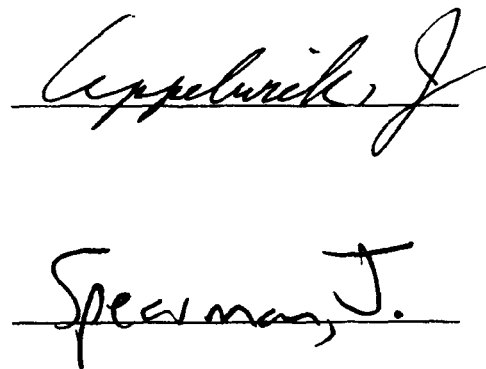 Appelwick, J
Spearman, J.